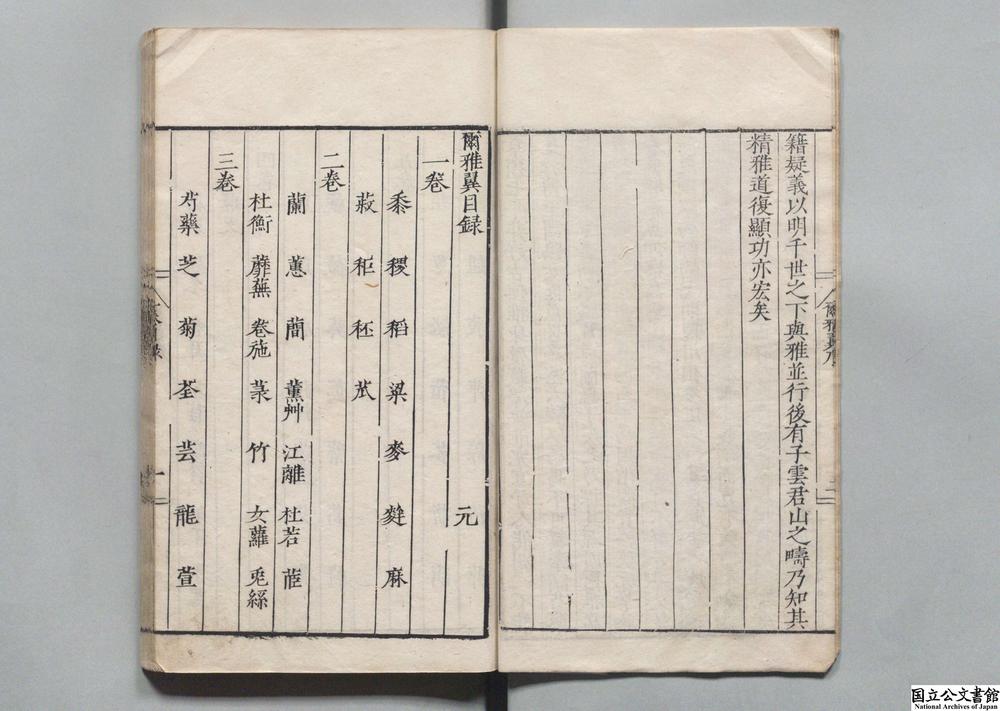 籍疑義以明千世之下與雅並行後有子雲君山之疇乃知其
精雅道復顯功亦宏矣
爾雅翼目録 元
一卷
黍 稷 稻 粱 麥 麰 麻
菽 秬 秠
二卷
蘭 蕙 蕳 薰艸 江蘺 杜若 茝
杜衡 蘼蕪 卷施 菉 竹 女蘿 兎絲
三卷
芍藥 芝 菊 荃 芸 蘢 萱
国立公文書館
National Archives of Japan